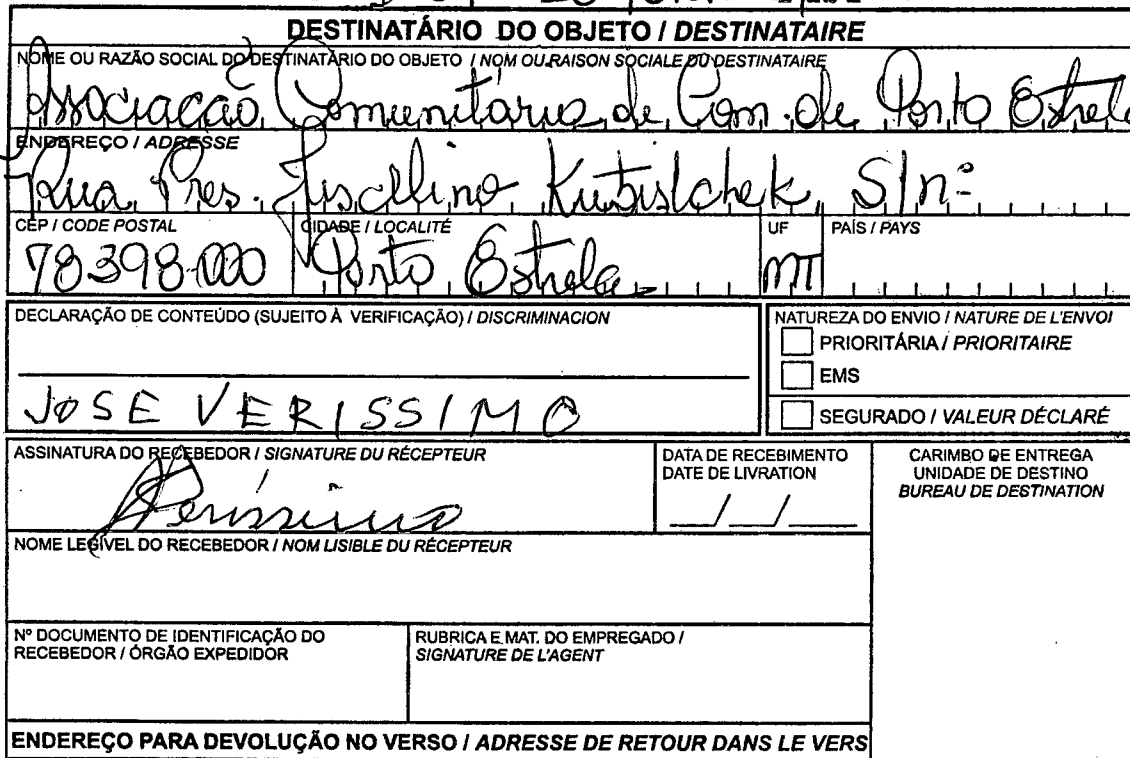 DESTINATÁRIO DO OBJETO / DESTINATAIRE
NOME OU RAZÃO SOCIAL DO DESTINATÁRIO DO OBJETO / NOM OU RAISON SOCIALE DU DESTINATAIRE
Associação Comunitária de Com. de Porto Estrela
ENDEREÇO / ADRESSE
Rua Pres. Juscelino Kubistchek, S/nº
CEP / CODE POSTAL CIDADE / LOCALITÉ UF PAÍS / PAYS
78398.000 Porto Estrela MT
DECLARAÇÃO DE CONTEÚDO (SUJEITO À VERIFICAÇÃO) / DISCRIMINACION
NATUREZA DO ENVIO / NATURE DE L'ENVOI
PRIORITÁRIA / PRIORITAIRE
EMS
SEGURADO / VALEUR DÉCLARÉ
JOSE VERISSIMO
ASSINATURA DO RECEBEDOR / SIGNATURE DU RÉCEPTEUR
Veríssimo
DATA DE RECEBIMENTO
DATE DE LIVRATION
__/__/__
CARIMBO DE ENTREGA
UNIDADE DE DESTINO
BUREAU DE DESTINATION
NOME LEGÍVEL DO RECEBEDOR / NOM LISIBLE DU RÉCEPTEUR
Nº DOCUMENTO DE IDENTIFICAÇÃO DO
RECEBEDOR / ÓRGÃO EXPEDIDOR
RUBRICA E MAT. DO EMPREGADO /
SIGNATURE DE L'AGENT
ENDEREÇO PARA DEVOLUÇÃO NO VERSO / ADRESSE DE RETOUR DANS LE VERS